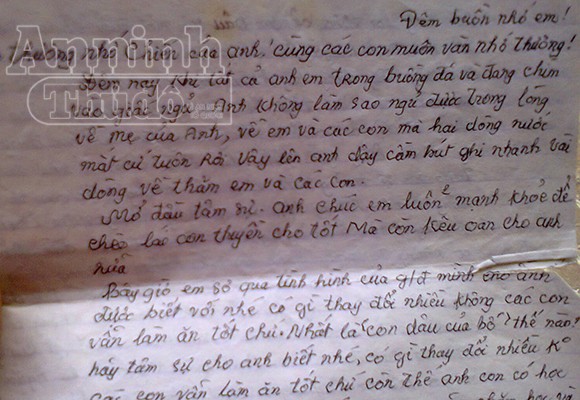 Đêm buồn nhớ em!
thương nhớ Chiên của anh, cùng các con muôn vàn nhớ thương!
Đêm nay khi tất cả anh em trong buồng đã và đang chìm
vào giấc ngủ. Anh không làm sao ngủ được trong lòng
về mẹ của Anh, về em và các con mà hai dòng nước
mắt cứ tuôn Rơi Vậy lên anh dậy cầm bút ghi nhanh vài
dòng về thăm em và các con.
Mở đầu tâm sự. Anh chúc em luôn mạnh khỏe để
chèo lái con thuyền cho tốt Mà còn kêu oan cho anh
nữa
Bây giờ em sơ qua tình hình của g/đ mình cho anh
được biết với nhé có gì thay đổi nhiều không các con
vẫn làm ăn tốt chứ. Nhất là con dâu của bố thế nào?
hãy tâm sự cho anh biết nhé, có gì thay đổi nhiều Kº
các con vẫn làm ăn tốt chứ còn thế anh con có học
An ninh
Thủ đô